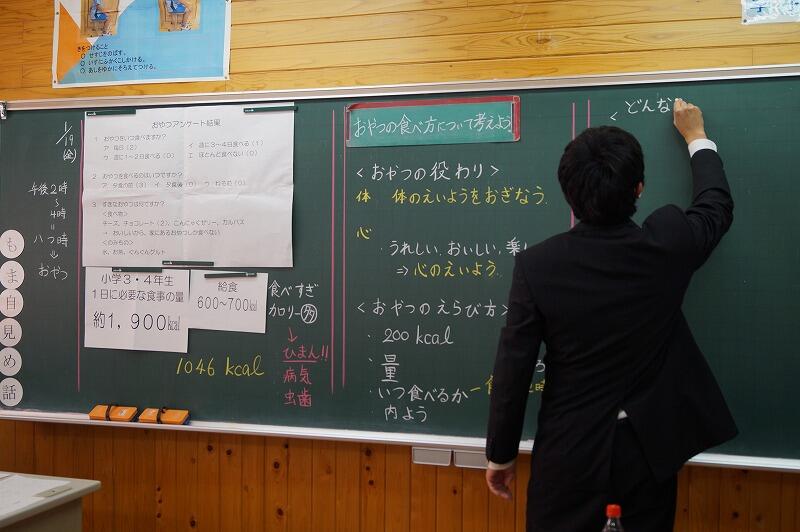 きをつけること
○ せすじをのばす。
○ いすにふかくこしかける。
○ あしをゆかにそろえてつける。
1/19
(金)
午後2時
~
4時
=
八つ時
↓
おやつ
も
ま
自
見
め
話
おやつアンケート結果
1 おやつをいつ食べますか?
ア 毎日(2) イ 週に3~4日食べる(1)
ウ 週に1~2日食べる(0) エ ほとんど食べない(0)
2 おやつを食べるのはいつですか?
ア 夕食の前(3) イ 夕食後(0) ウ ねる前(0)
3 すきなおやつは何ですか?
<食べ物>
チーズ、チョコレート(2)、こんにゃくゼリー、カルパス
→ おいしいから、家にあるおやつしか食べない
<のみもの>
水、お茶、ぐんぐんグルト
小学3・4年生
1日に必要な食事の量
約1,900kcal
給食
600~700kcal
1046 kcal
食べすぎ
カロリー多
↓
ひまん!!
病気
虫歯
おやつの食べ方について考えよう
<おやつの役わり>
体 体のえいようをおぎなう。
心
・うれしい、おいしい、楽し
⇒心のえいよう。
<おやつのえらび方>
・200kcal
・量
・いつ食べるか
内よう
<どんな